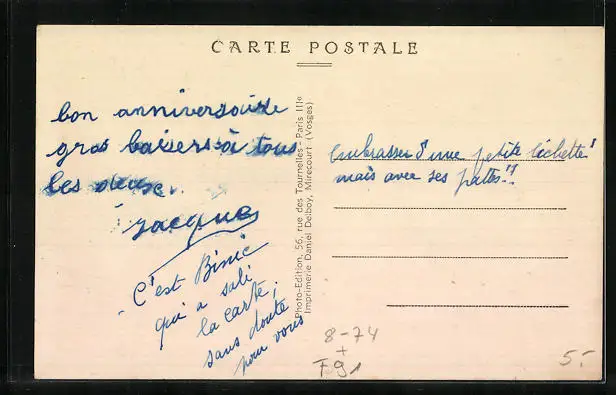 CARTE POSTALE
bon anniversaire
gros baisers à tous
les deux.
Jacques
C'est Binic
qui a sali
la carte,
sans doute
pour vous
embrasser d'une petite lichette
mais avec ses pattes!!
Photo-Edition, 56, rue des Tournelles - Paris IIIe
Imprimerie Daniel Delboy, Mirecourt (Vosges)
8-74
+
F91
5.-